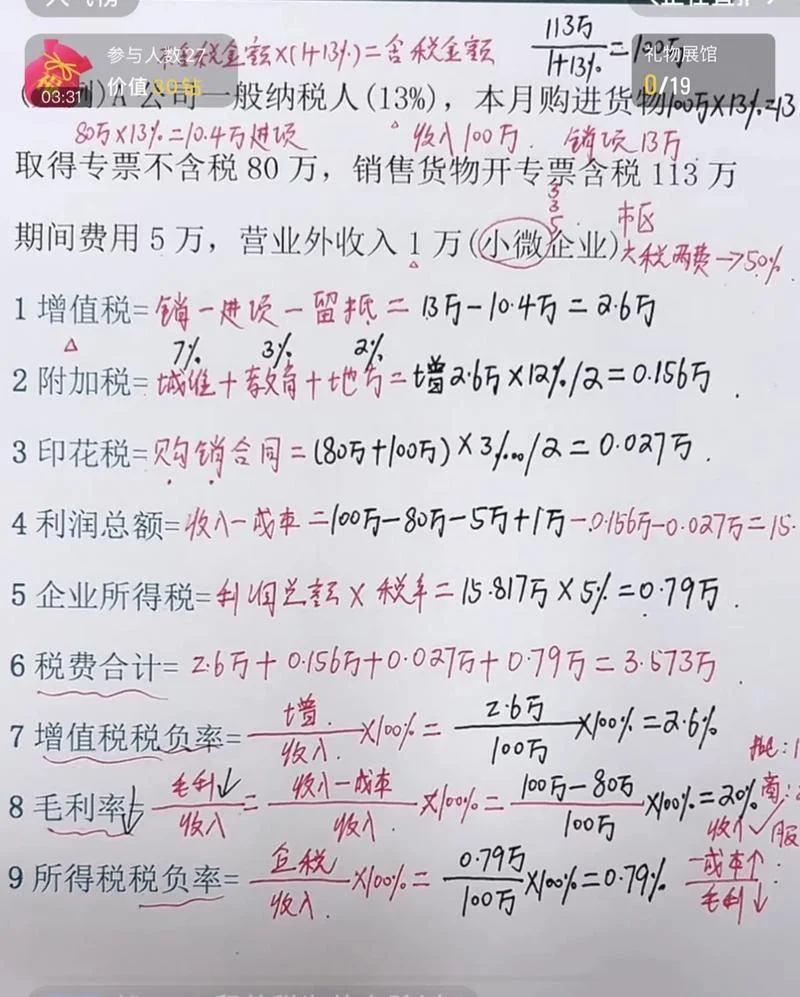 税金额×(1+13%)=含税金额 113万/1+13%=100万
参与人数 27
价值 30钻
03:31
礼物展馆
0/19
)A 公司一般纳税人(13%)，本月购进货物100万×13%=13
80万×13%=10.4万进项 收入100万. 销项13万
取得专票不含税 80 万，销售货物开专票含税 113 万
335
市区
期间费用 5 万，营业外收入 1 万(小微企业) 六税两费→50%
1 增值税=销-进项-留抵=13万-10.4万=2.6万
7% 3% 2%
2 附加税=城维+教育+地方=增2.6万×12%/2=0.156万.
3 印花税=购销合同=(80万+100万)×3‱/2=0.027万.
4 利润总额=收入-成本=100万-80万-5万+1万-0.156万-0.027万=15.
5 企业所得税=利润总额×税率=15.817万×5%=0.79万.
6 税费合计=2.6万+0.156万+0.027万+0.79万=3.573万.
7 增值税税负率=增/收入×100%=2.6万/100万×100%=2.6%
批:1
8 毛利率↓=毛利↓/收入=收入-成本/收入×100%=100万-80万/100万×100%=20% 商:
收入✓ 服
9 所得税税负率=企税/收入×100%=0.79万/100万×100%=0.79% -成本↑:
毛利↓